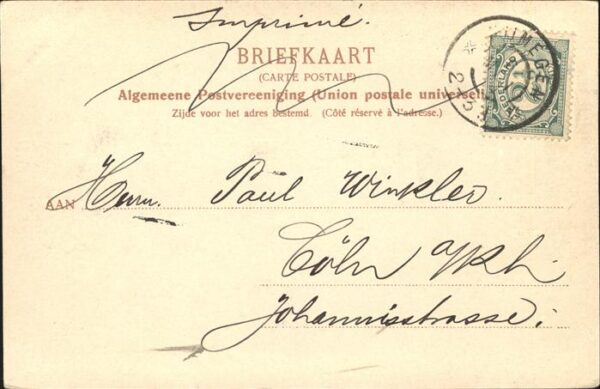 Imprimé.
BRIEFKAART
(CARTE POSTALE)
Algemeene Postvereeniging (Union postale universelle)
Zijde voor het adres bestemd. (Côté réservé à l'adresse.)
NIJMEGEN
NEDERLAND
AAN Herrn. Paul Winkler.
Cöln a/Rh.
Johannisstrasse: